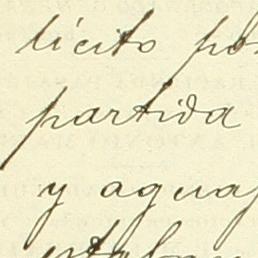 lícito po
partida
y aguas